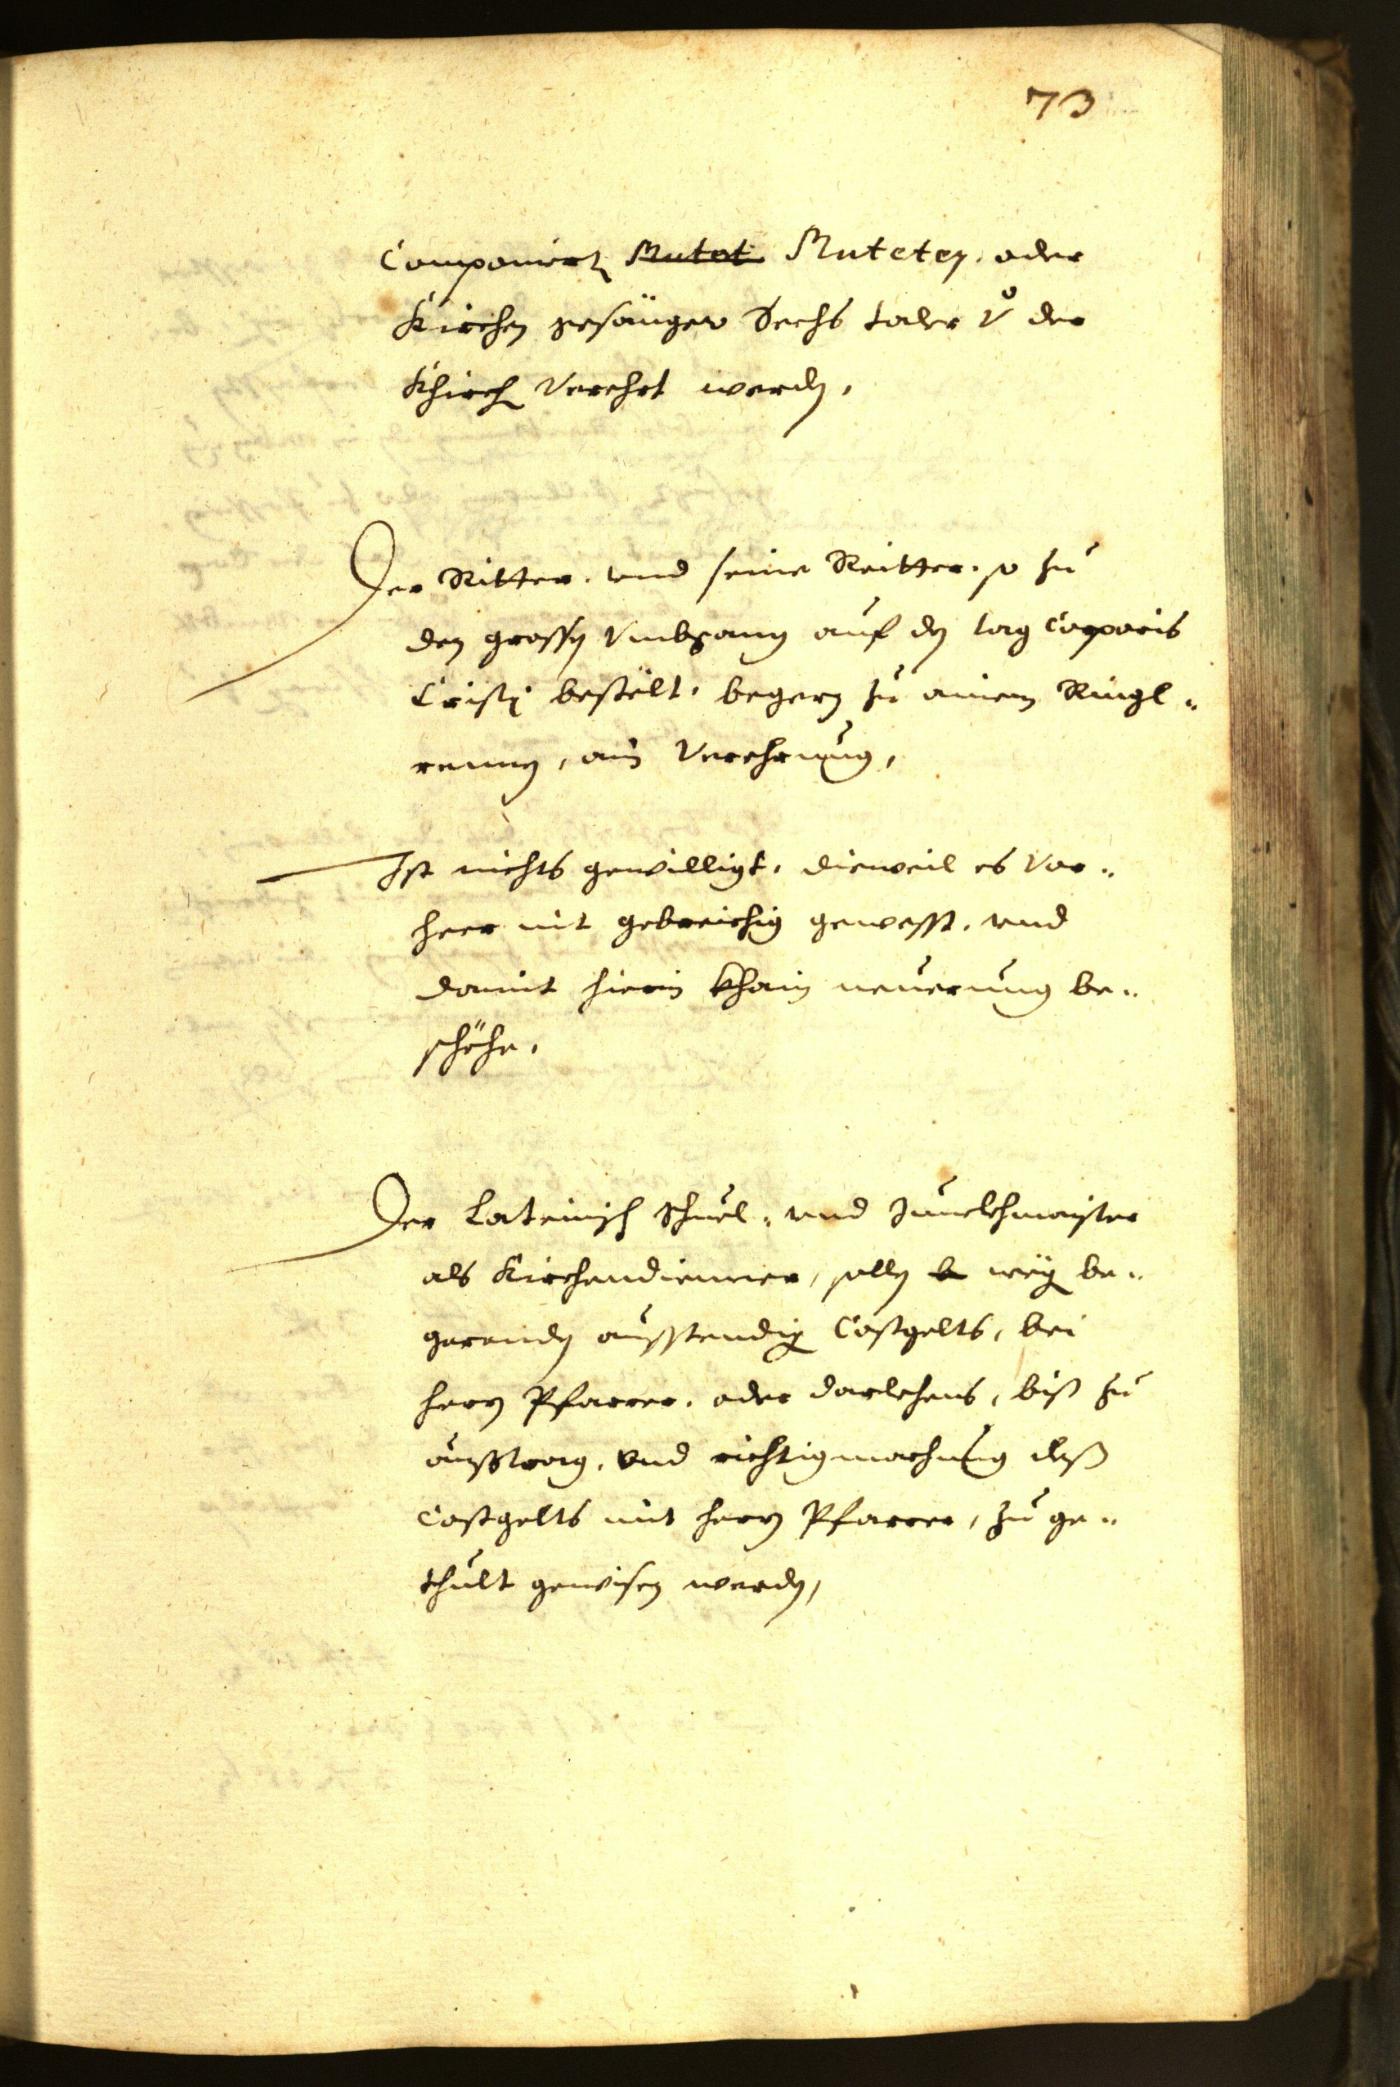 73
Componiert Mutet Muteten, oder
Kirchen gesänger Sechs taler v̊ der
Khirch Verehrt werden,
Der Ritter, und seine Reitter, so zu
den grossen Vmbgang auf den tag Corporis
Cristi bestëlt, begern zu ainem Ringl-
rennen, ain Verehrung,
Ist nichts gewilligt, dieweil es Vor-
heer nit gebreichig gewesst, und
damit hierin khain neuerung be-
schöhe.
Der Lateinisch Schuel- und Junckhmaister
als Kirchendienner, sollen weg be-
gerenden ausstendig Costgelts, bei
herrn Pfarrer, oder darlehens, biß zu
ausstrag, Vnd richtigmachung deß
Costgelts mit herrn Pfarrer, zu ge-
thult gewisen werden,